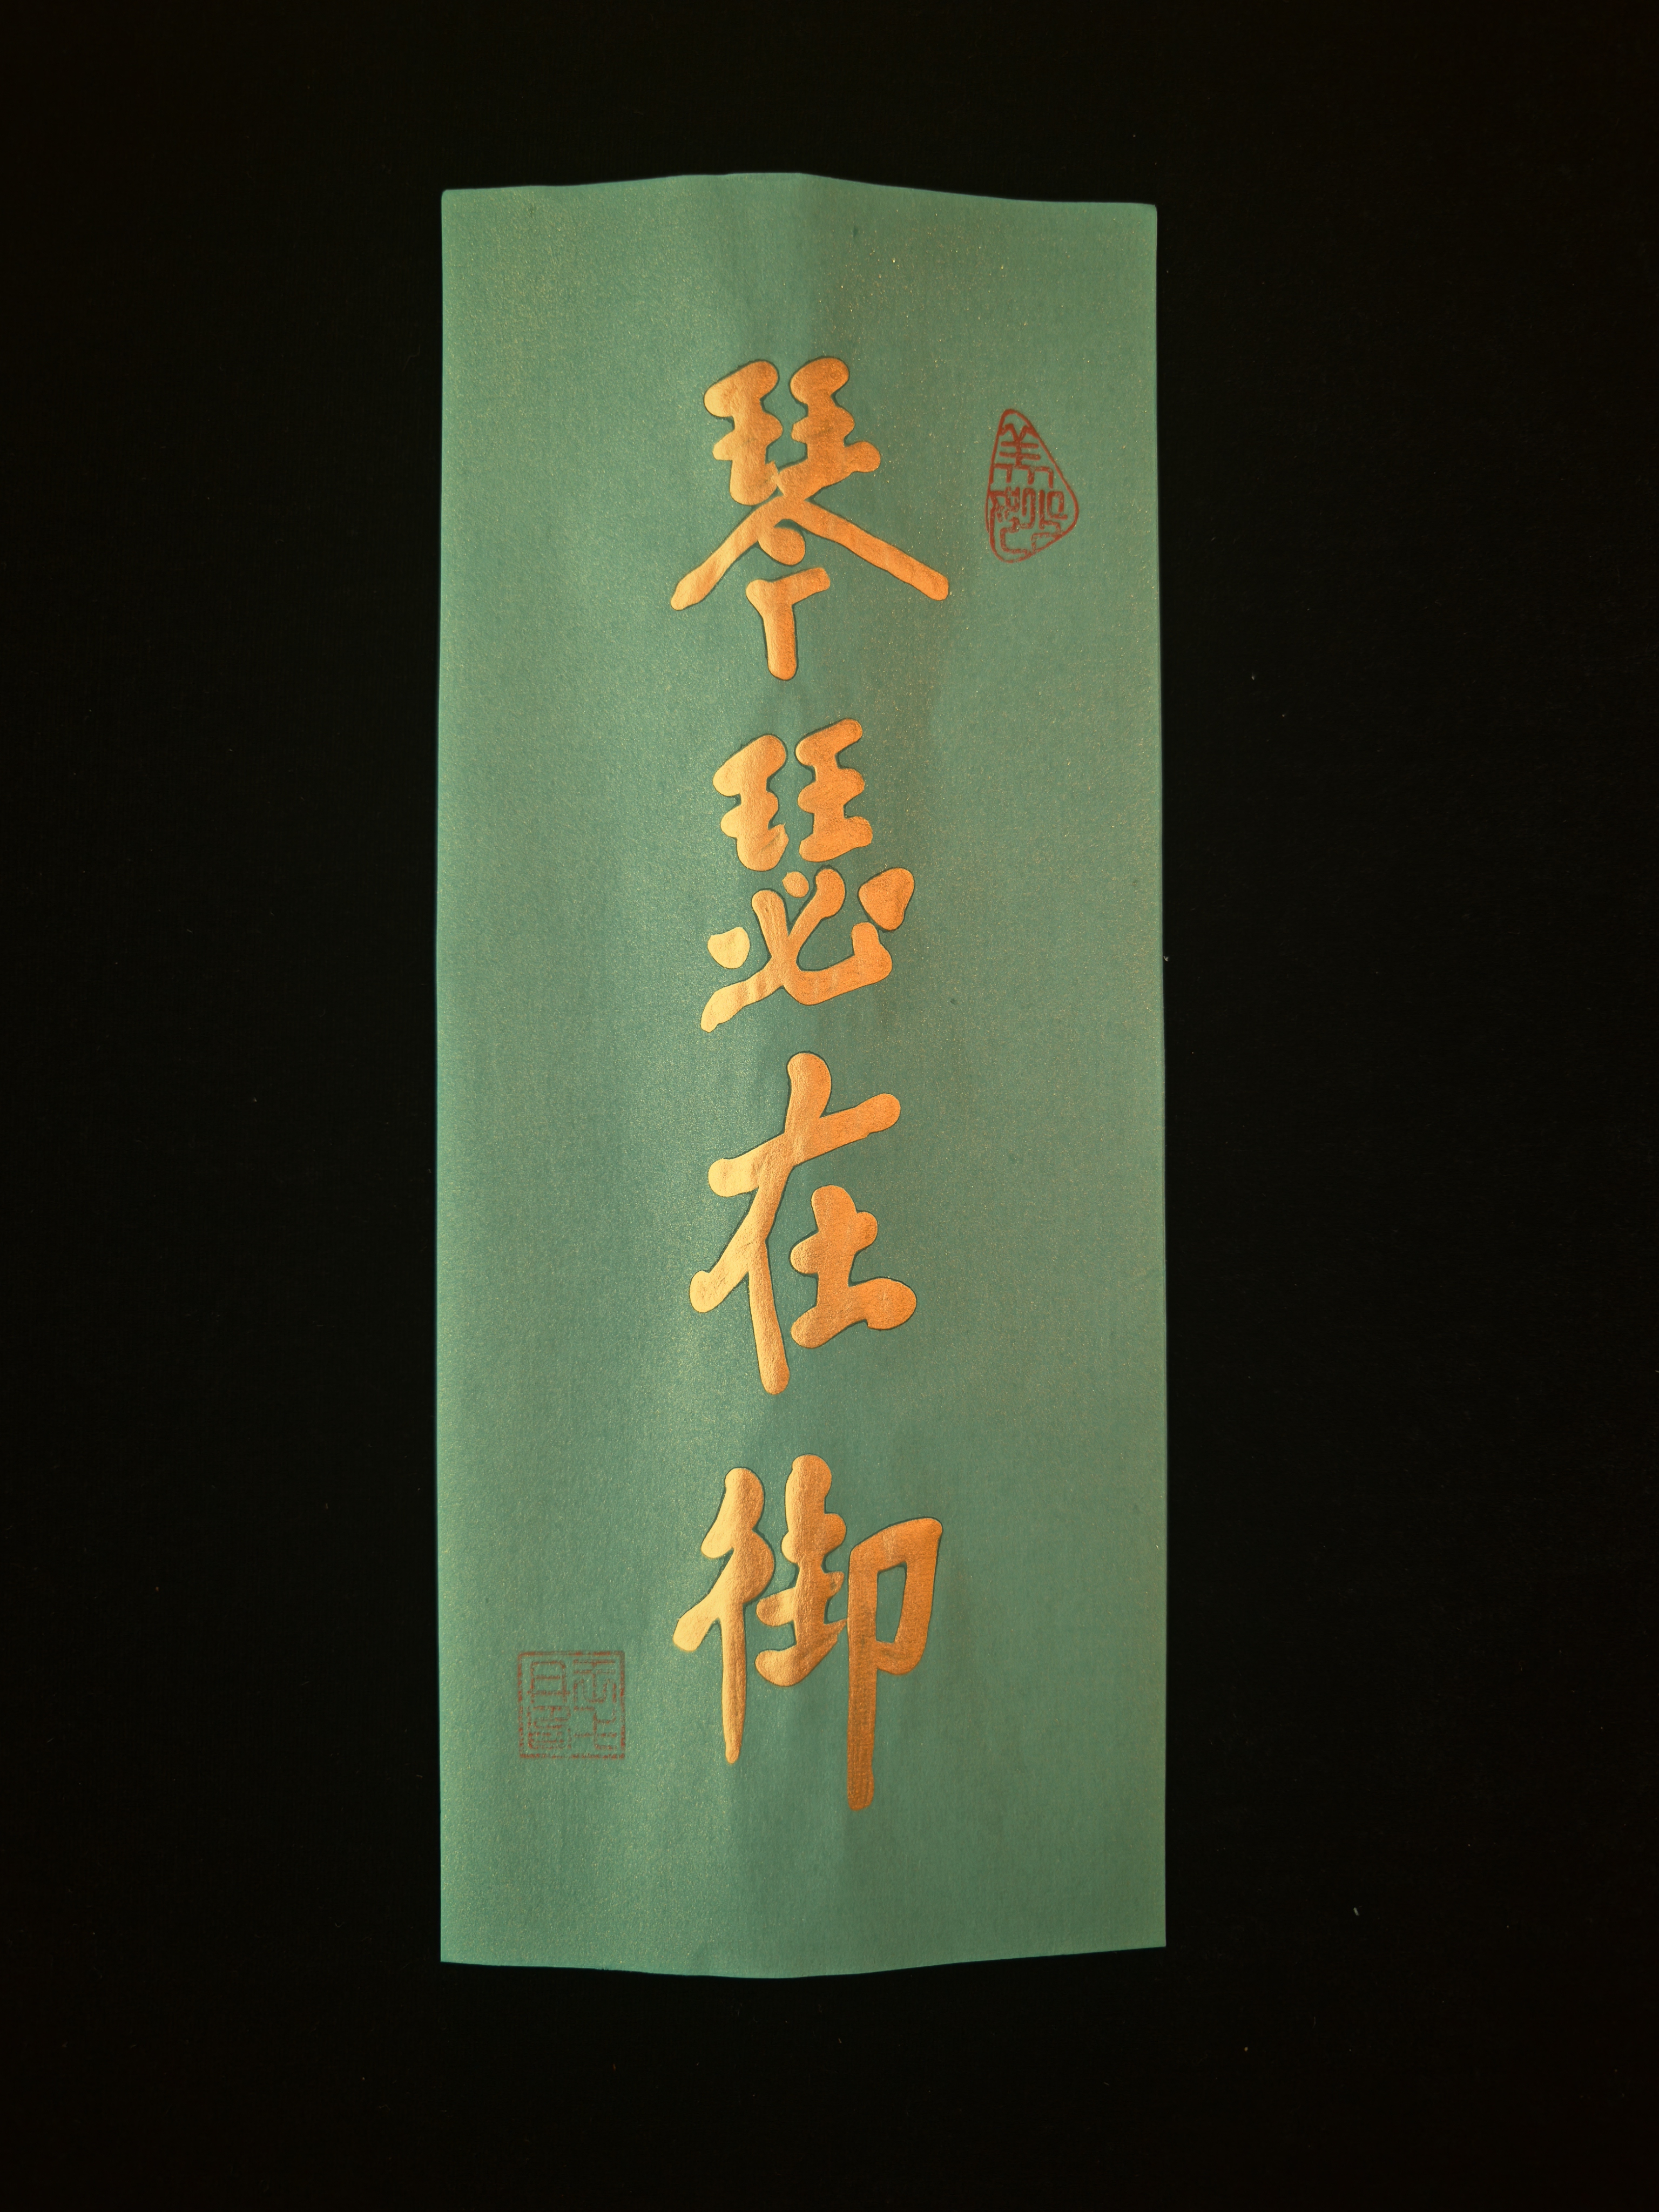 琴瑟在御